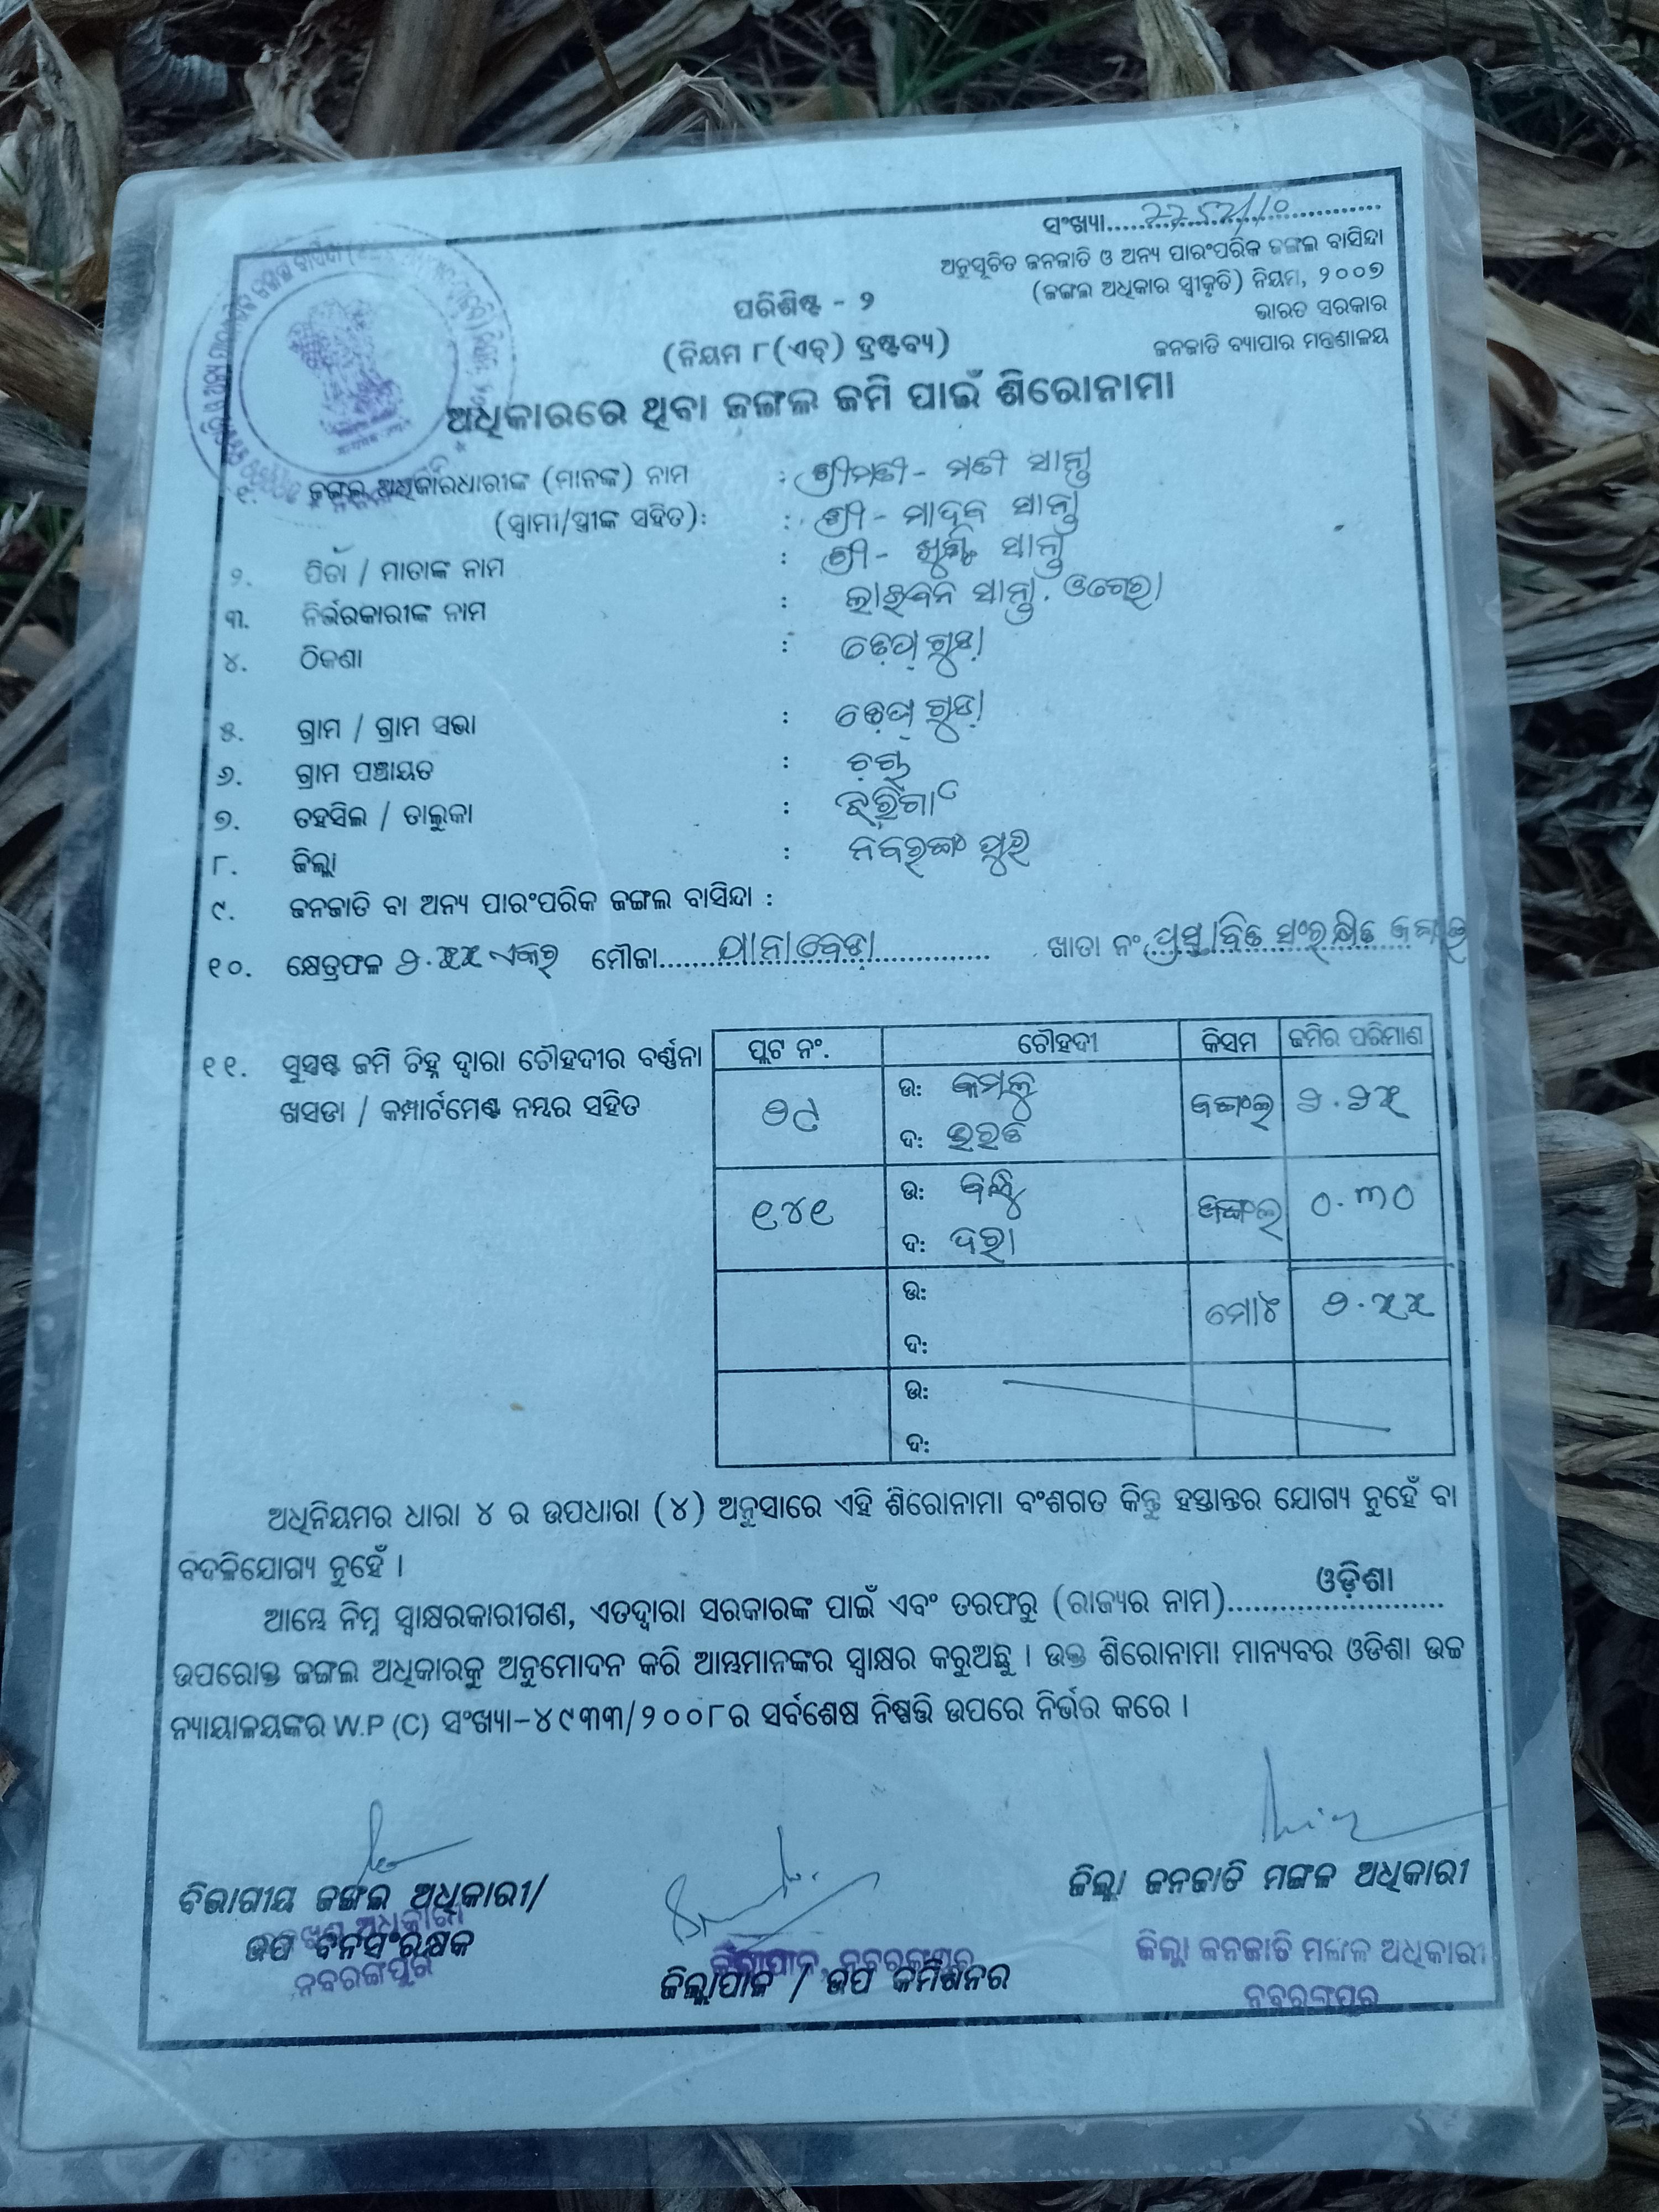 ସଂଖ୍ୟା
ଅନୁସୂଚିତ ଜନଜାତି ଓ ଅନ୍ୟ ପାରଂପରିକ ଜଙ୍ଗଲ ବାସିନ୍ଦା
(ଜଙ୍ଗଲ ଅଧିକାର ସ୍ୱୀକୃତି) ନିୟମ, ୨୦୦୭
ଭାରତ ସରକାର
ଜନଜାତି ବ୍ୟାପାର ମନ୍ତ୍ରଣାଳୟ
ପରିଶିଷ୍ଟ - ୨
(ନିୟମ ୮(ଏଚ୍) ଦ୍ରଷ୍ଟବ୍ୟ)
ଅଧିକାରରେ ଥିବା ଜଙ୍ଗଲ ଜମି ପାଇଁ ଶିରୋନାମା
୧. ଜଙ୍ଗଲ ଅଧିକାରଧାରୀଙ୍କ (ମାନଙ୍କ) ନାମ : ଶ୍ରୀମତୀ - ମତୀ ସାନ୍ତା
(ସ୍ୱାମୀ/ସ୍ତ୍ରୀଙ୍କ ସହିତ): : ଶ୍ରୀ - ସାନ୍ତା
୨. ପିତା / ମାତାଙ୍କ ନାମ : ଶ୍ରୀ - ସାନ୍ତା
୩. ନିର୍ଭରକାରୀଙ୍କ ନାମ : ସାନ୍ତା. ଓଗେରା
୪. ଠିକଣା :
୫. ଗ୍ରାମ / ଗ୍ରାମ ସଭା :
୬. ଗ୍ରାମ ପଞ୍ଚାୟତ :
୭. ତହସିଲ / ତାଲୁକା : ଝରିଗାଁ
୮. ଜିଲ୍ଲା : ନବରଙ୍ଗପୁର
୯. ଜନଜାତି ବା ଅନ୍ୟ ପାରଂପରିକ ଜଙ୍ଗଲ ବାସିନ୍ଦା :
୧୦. କ୍ଷେତ୍ରଫଳ ୨.୫୫ ଏକର ମୌଜା ଖାତା ନଂ ପ୍ରସ୍ତାବିତ ସଂରକ୍ଷିତ ଜଙ୍ଗଲ
୧୧. ସୁସ୍ପଷ୍ଟ ଜମି ଚିହ୍ନ ଦ୍ୱାରା ଚୌହଦୀର ବର୍ଣ୍ଣନା
ଖସଡା / କମ୍ପାର୍ଟମେଣ୍ଟ ନମ୍ବର ସହିତ
ପ୍ଲଟ ନଂ. ଚୌହଦୀ କିସମ ଜମିର ପରିମାଣ
୨୯ ଉ: କମଳୁ ଜଙ୍ଗଲ ୨.୨୫
ଦ: ଭରତ
୧୪୧ ଉ: ଜଙ୍ଗଲ ୦.୩୦
ଦ:
ଉ: ମୋଟ ୨.୫୫
ଦ:
ଉ:
ଦ:
ଅଧିନିୟମର ଧାରା ୪ ର ଉପଧାରା (୪) ଅନୁସାରେ ଏହି ଶିରୋନାମା ବଂଶଗତ କିନ୍ତୁ ହସ୍ତାନ୍ତର ଯୋଗ୍ୟ ନୁହେଁ ବା
ବଦଳିଯୋଗ୍ୟ ନୁହେଁ ।
ଆମ୍ଭେ ନିମ୍ନ ସ୍ୱାକ୍ଷରକାରୀଗଣ, ଏତଦ୍ୱାରା ସରକାରଙ୍କ ପାଇଁ ଏବଂ ତରଫରୁ (ରାଜ୍ୟର ନାମ) ଓଡ଼ିଶା
ଉପରୋକ୍ତ ଜଙ୍ଗଲ ଅଧିକାରକୁ ଅନୁମୋଦନ କରି ଆମ୍ଭମାନଙ୍କର ସ୍ୱାକ୍ଷର କରୁଅଛୁ । ଉକ୍ତ ଶିରୋନାମା ମାନ୍ୟବର ଓଡିଶା ଉଚ୍ଚ
ନ୍ୟାୟାଳୟଙ୍କର W.P (C) ସଂଖ୍ୟା-୪୯୩୩/୨୦୦୮ର ସର୍ବଶେଷ ନିଷ୍ପତ୍ତି ଉପରେ ନିର୍ଭର କରେ ।
ବିଭାଗୀୟ ଜଙ୍ଗଲ ଅଧିକାରୀ/
ଉପ ବନସଂରକ୍ଷକ
ନବରଙ୍ଗପୁର
ଜିଲ୍ଲାପାଳ, ନବରଙ୍ଗପୁର
ଜିଲ୍ଲାପାଳ / ଉପ କମିଶନର
ଜିଲ୍ଲା ଜନଜାତି ମଙ୍ଗଳ ଅଧିକାରୀ
ଜିଲ୍ଲା ଜନଜାତି ମଙ୍ଗଳ ଅଧିକାରୀ
ନବରଙ୍ଗପୁର